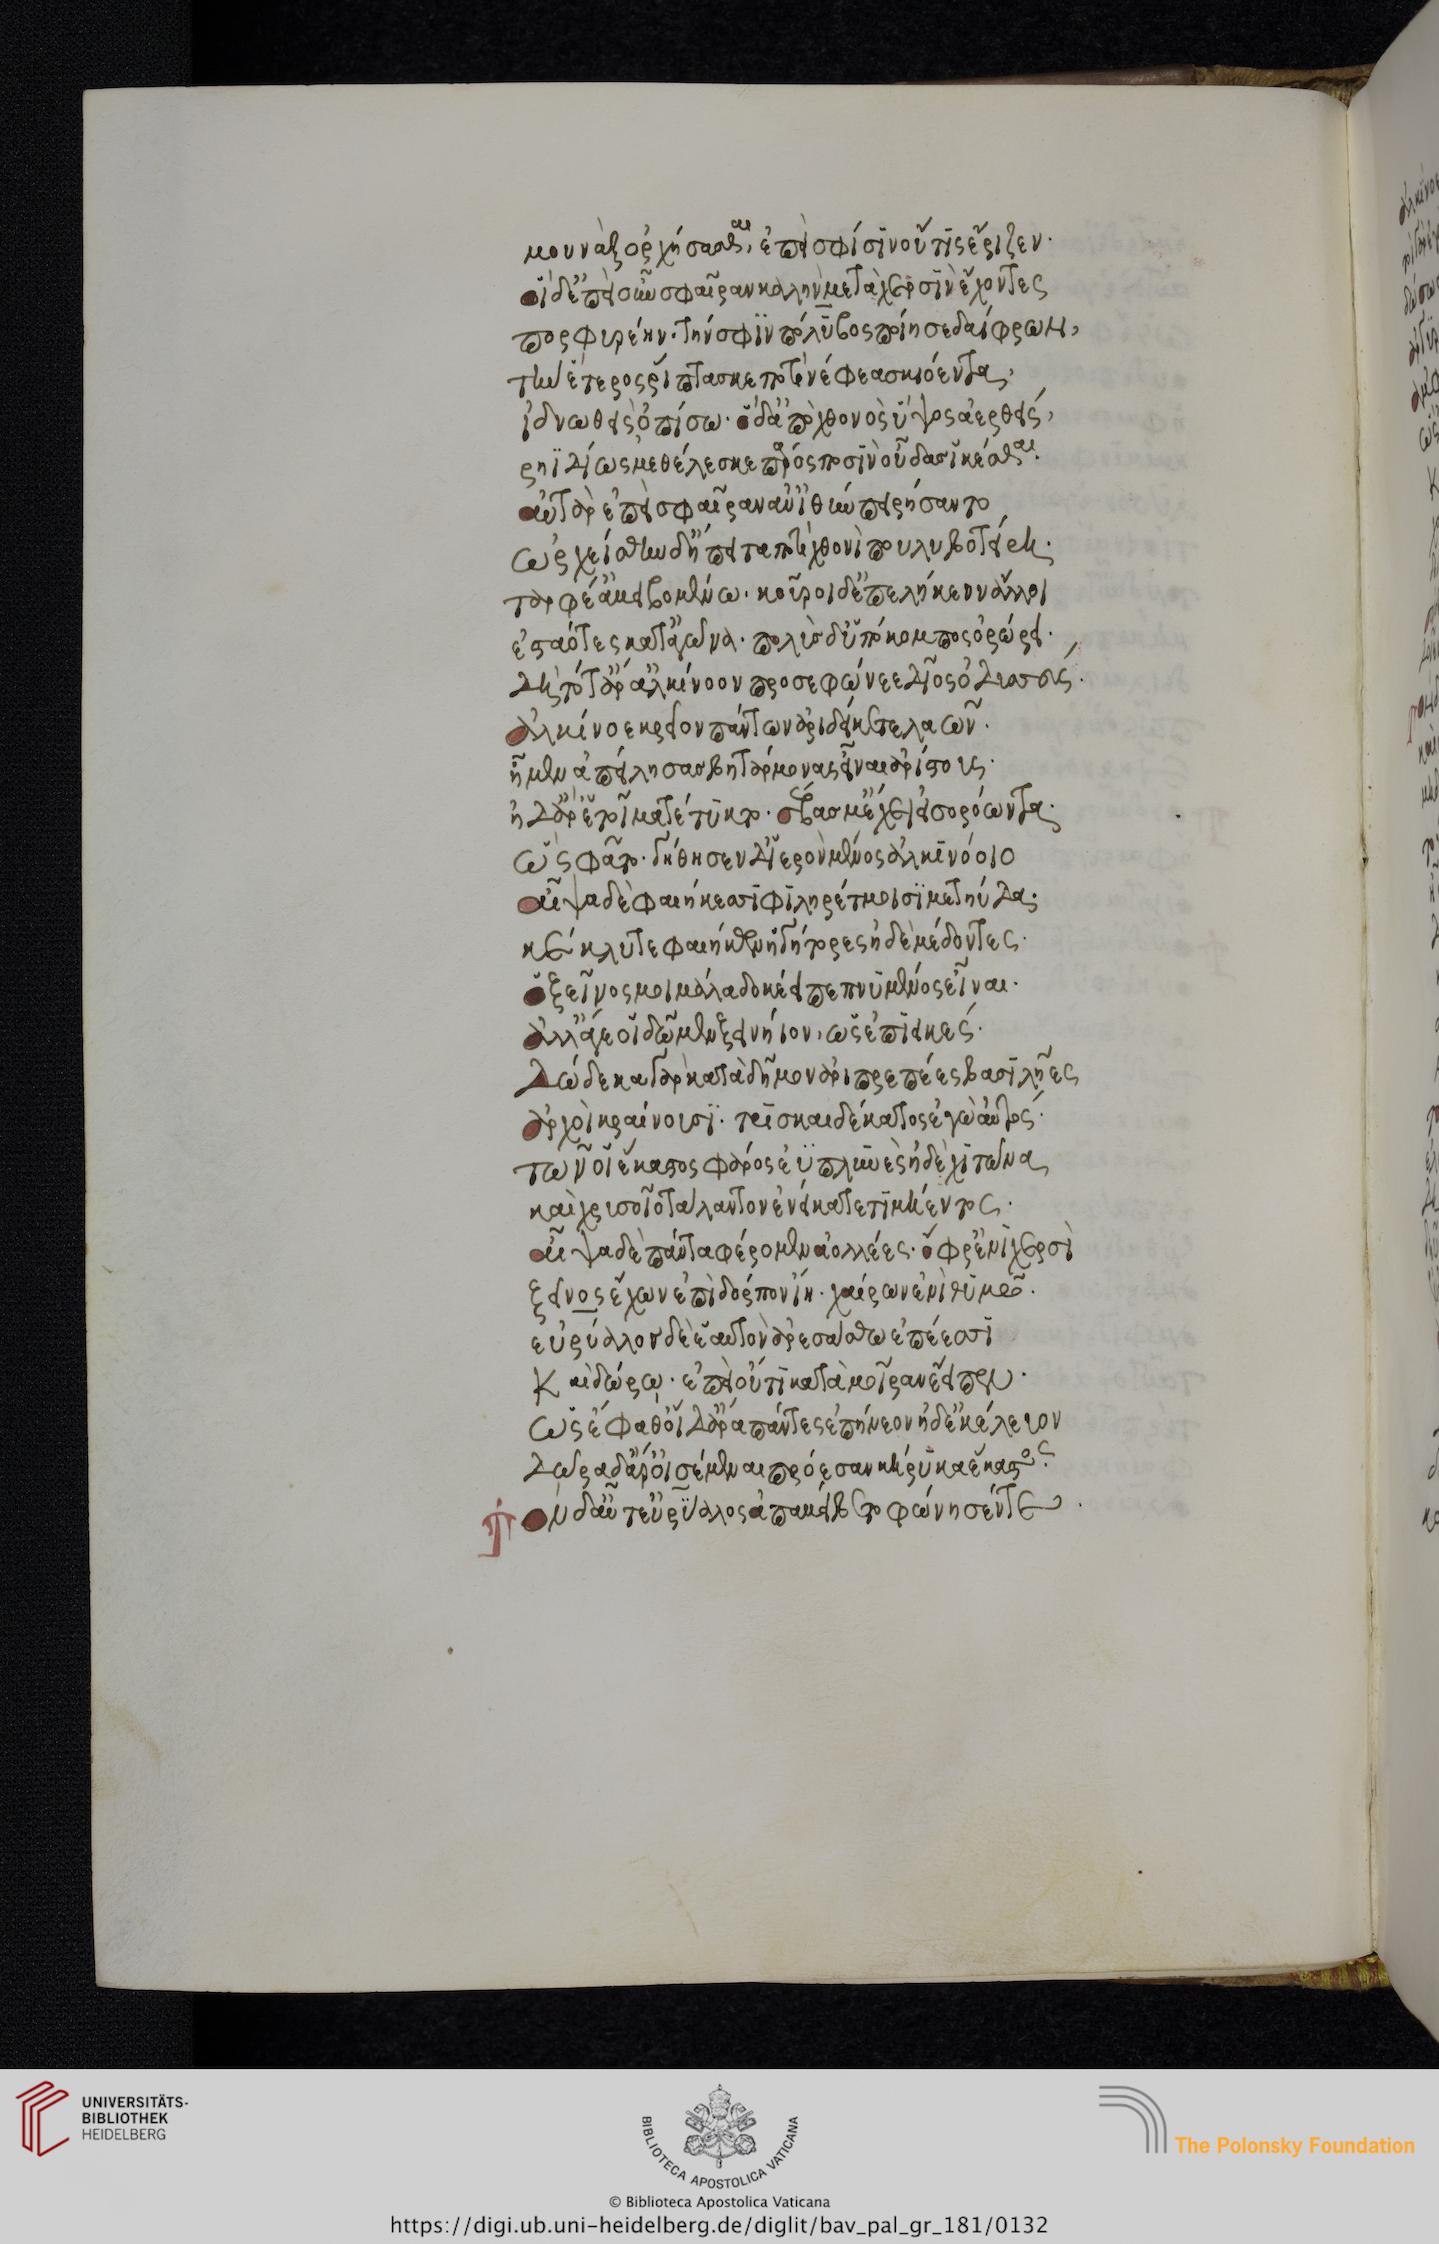 μουνὰξ ὀρχήσασθαι, ἐπεὶ σφίσιν οὔτις ἔριζεν·
οἱ δ' ἐπεὶ οὖν σφαῖραν καλὴν μετὰ χερσὶν ἔχοντες
πορφυρέην· τήν σφιν πόλυβος ποίησε δαίφρων,
τὴν ἕτερος ῥίπτασκε ποτὶ νέφεα σκιόεντα,
ἰδνωθεὶς ὀπίσω· ὁ δ' ἀπὸ χθονὸς ὑψόσ' ἀερθείς,
ρηϊδίως μεθέλεσκε πάρος ποσὶν οὖδας ἱκέσθαι·
αὐτὰρ ἐπεὶ σφαῖραν ἀν' ἰθὺν πειρήσαντο
ὠρχείσθην δὴ ἔπειτα ποτὶ χθονὶ πουλυβοτείρη·
ταρφέ' ἀμειβομένω· κοῦροι δ' ἐπελήκεον ἄλλοι
ἑσταότες κατ' ἀγῶνα· πολὺς δ' ὑπὸ κόμπος ὀρώρει·
δὴ τότ' ἄρ' ἀλκίνοον προσεφώνεε δῖος ὀδυσσεύς·
ἀλκίνοε κρεῖον πάντων ἀριδείκετε λαῶν·
ἠμὲν ἀπείλησας βητάρμονας εἶναι ἀρίστους·
ἠδ' ἄρ' ἑτοῖμα τέτυκτο· σέβας μ' ἔχει εἰσορόωντα·
ὣς φάτο· γήθησεν δ' ἱερὸν μένος ἀλκινόοιο
αἶψα δὲ φαιήκεσσι φιληρέτμοισι μετηύδα·
κέκλυτε φαιήκων ἡγήτορες ἠδὲ μέδοντες·
ὁ ξεῖνος μοι μάλα δοκέει πεπνυμένος εἶναι·
ἀλλ' ἄγε οἱ δῶμεν ξεινήιον, ὡς ἐπιεικές·
δώδεκα γὰρ κατὰ δῆμον ἀριπρεπέες βασιλῆες
ἀρχοὶ κραίνουσι· τρισκαιδέκατος ἐγὼ αὐτός·
τῶν οἱ ἕκαστος φάρος ἐϋπλυνὲς ἠδὲ χιτῶνα
καὶ χρυσοῖο τάλαντον ἐνείκατε τιμήεντος·
αἶψα δὲ πάντα φέρομεν ἀολλέες· ὄφρ' ἐνὶ χερσὶ
ξεῖνος ἔχων ἐπὶ δόρπον ἴη· χαίρων ἐνὶ θυμῷ·
εὐρύαλον δὲ ἑ αὐτὸν ἀρεσσάσθω ἐπέεσσι
Καὶ δώρῳ· ἐπεὶ οὔτι κατὰ μοῖραν ἔειπεν·
ὣς ἔφαθ' οἱ δ' ἄρα πάντες ἐπήνεον ἠδ' ἐκέλευον
δῶρα δ' ἄρ' οἰσέμεναι πρόεσαν κήρυκα ἕκαστος·
τὸν δ' αὖτ' εὐρύαλος ἀπαμείβετο φώνησέν τε·
UNIVERSITÄTS-
BIBLIOTHEK
HEIDELBERG
BIBLIOTECA APOSTOLICA VATICANA
The Polonsky Foundation
© Biblioteca Apostolica Vaticana
https://digi.ub.uni-heidelberg.de/diglit/bav_pal_gr_181/0132